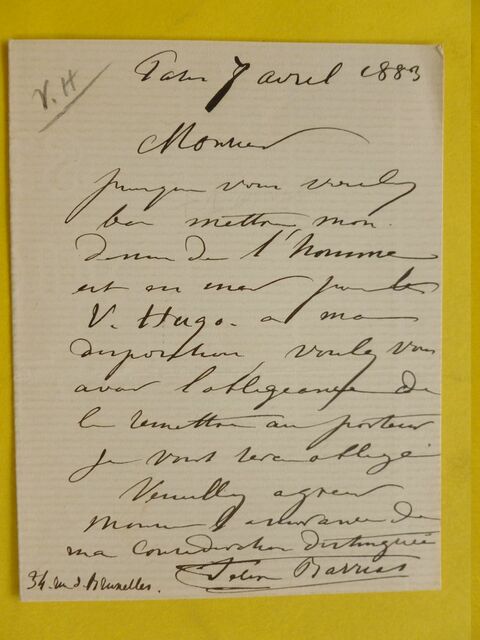 V. H
Paris 7 avril 1883
Monsieur
puisque vous voulez
bien mettre mon
dessin de l'homme
est en mer pour les
V. Hugo. a ma
disposition, voulez vous
avoir l'obligeance de
le remettre au porteur
je vous serai obligé
Veuillez agréer
Monsieur l'assurance de
ma considération distinguée
Félix Barrias
34. rue d. Bruxelles.